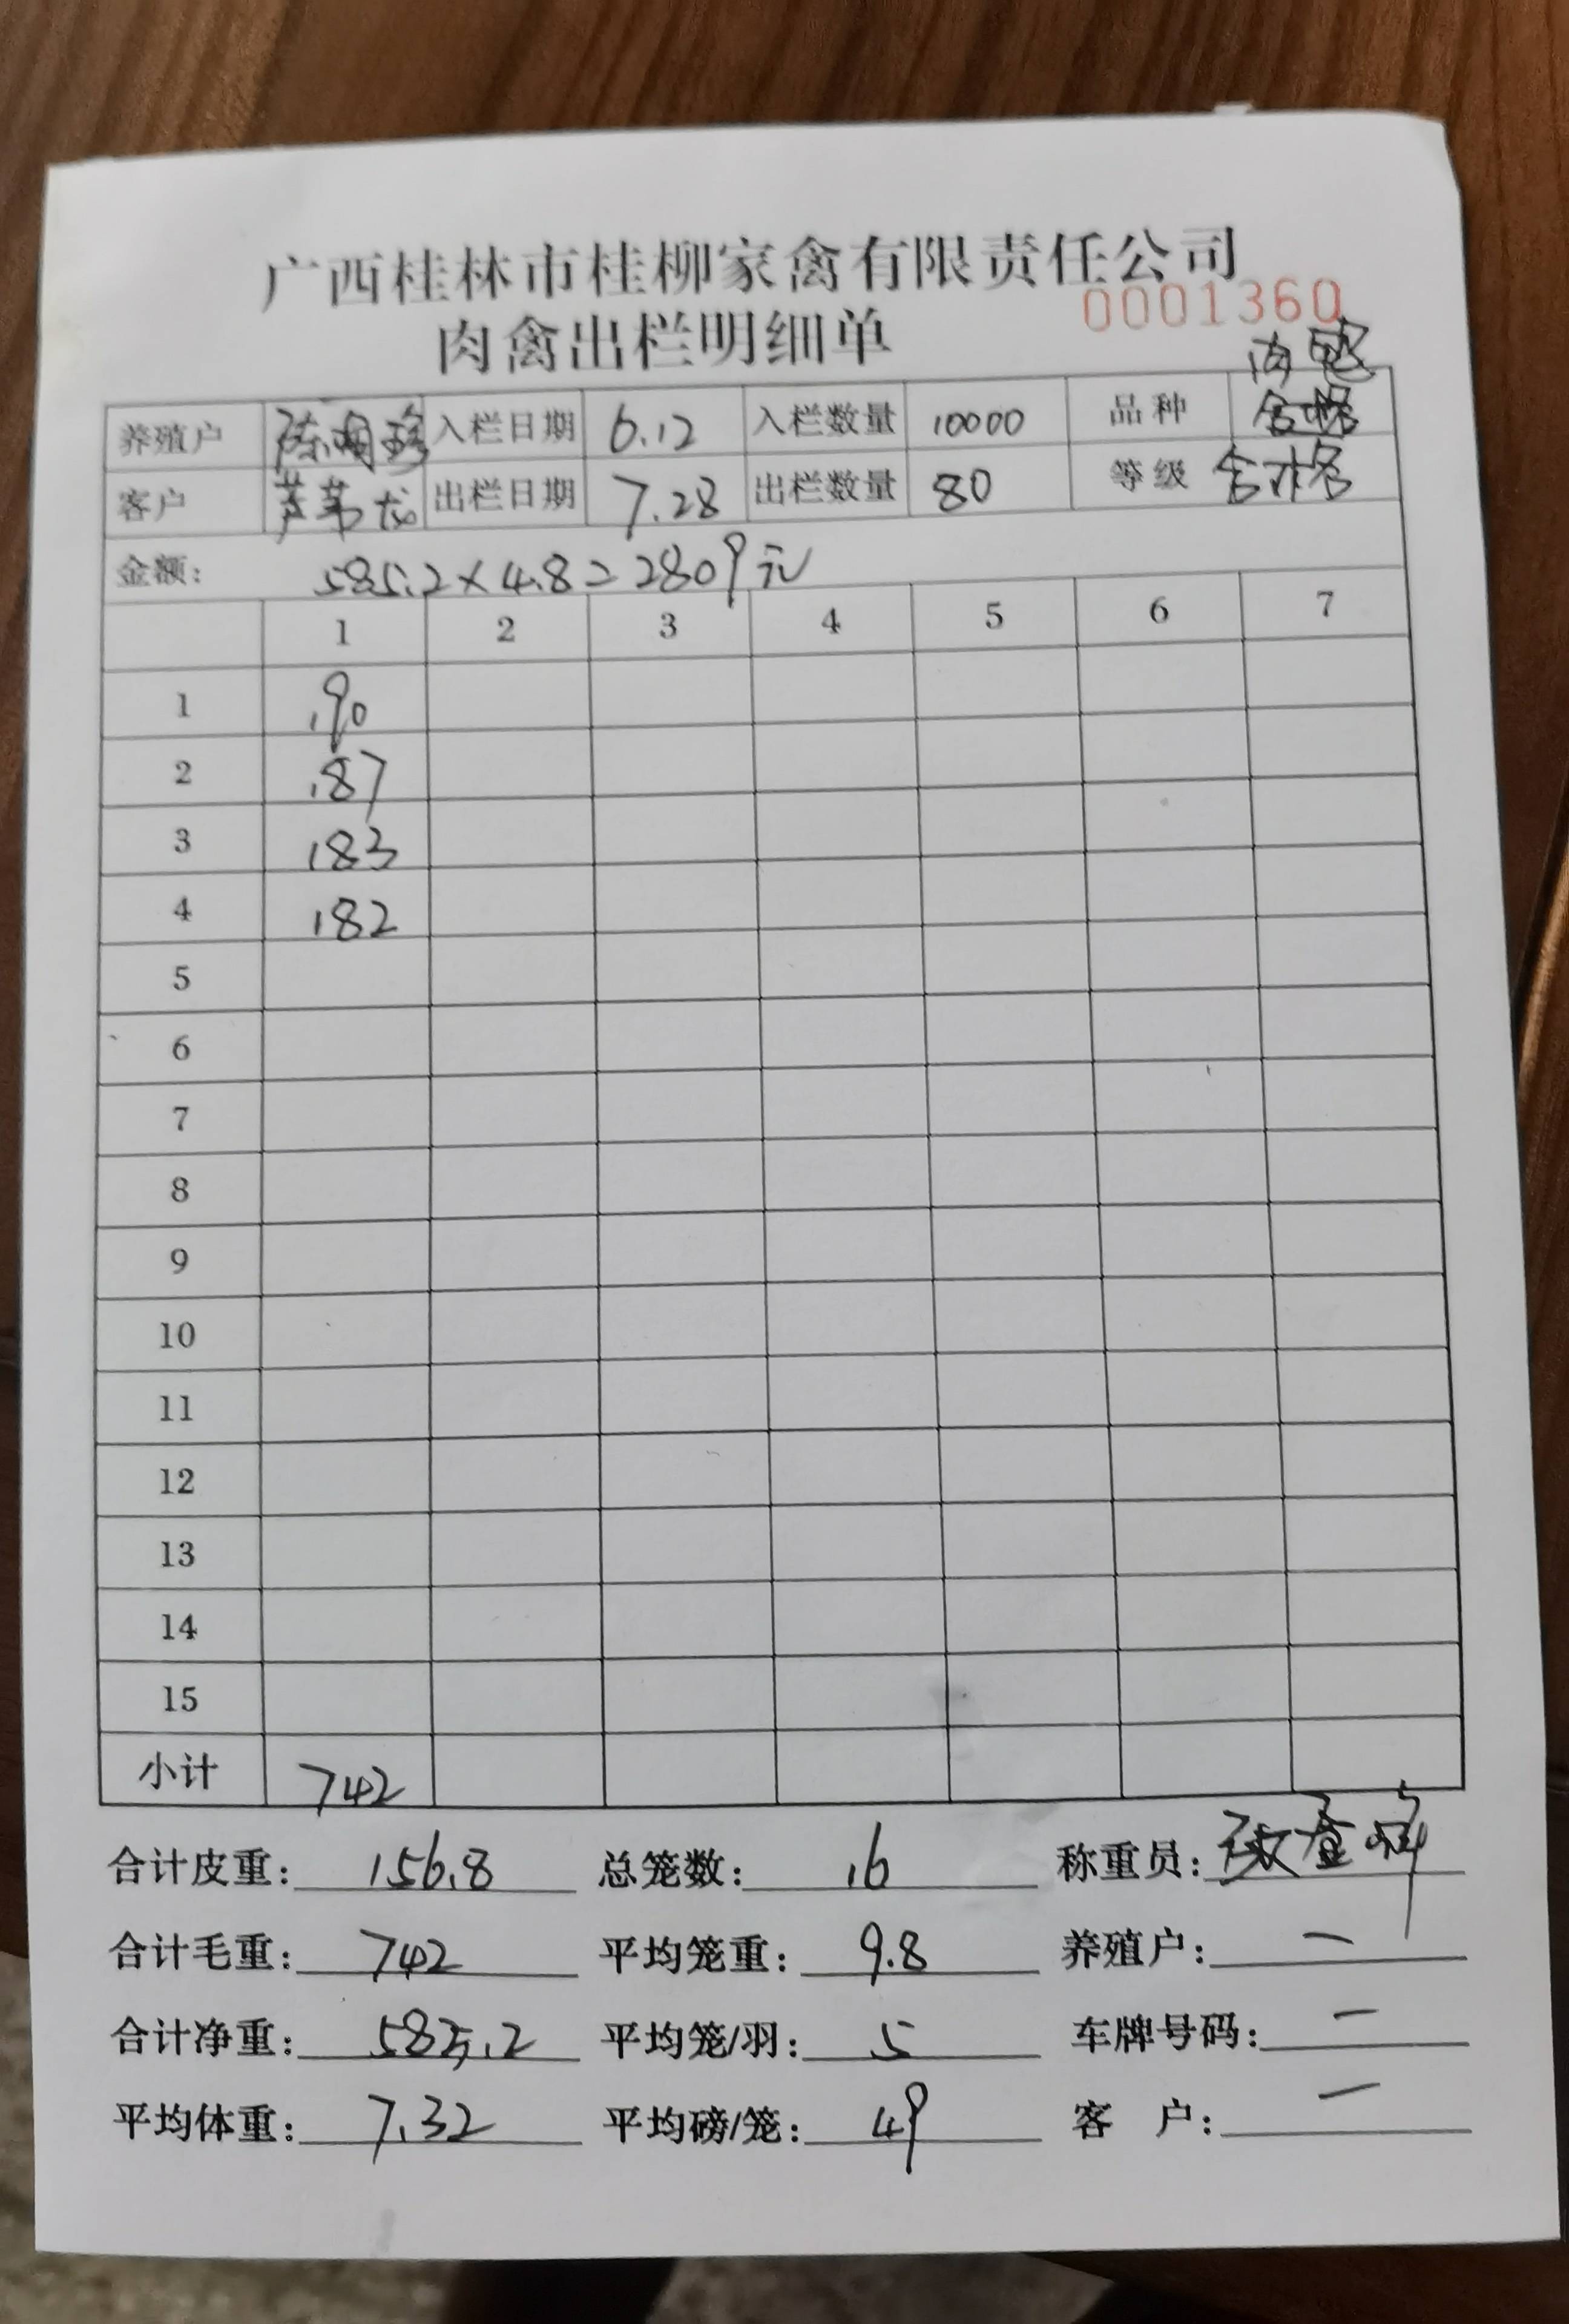 广西桂林市桂柳家禽有限责任公司
0001360
肉禽出栏明细单
养殖户 入栏日期 6.12 入栏数量 10000 品种
客户 出栏日期 7.28 出栏数量 80 等级 合格
金额: 585.2×4.8=2809元
1 2 3 4 5 6 7
1 190
2 187
3 183
4 182
5
6
7
8
9
10
11
12
13
14
15
小计 742
合计皮重: 156.8 总笼数: 16 称重员:
合计毛重: 742 平均笼重: 9.8 养殖户: 一
合计净重: 585.2 平均笼/羽: 5 车牌号码: 一
平均体重: 7.32 平均磅/笼: 49 客 户: 一